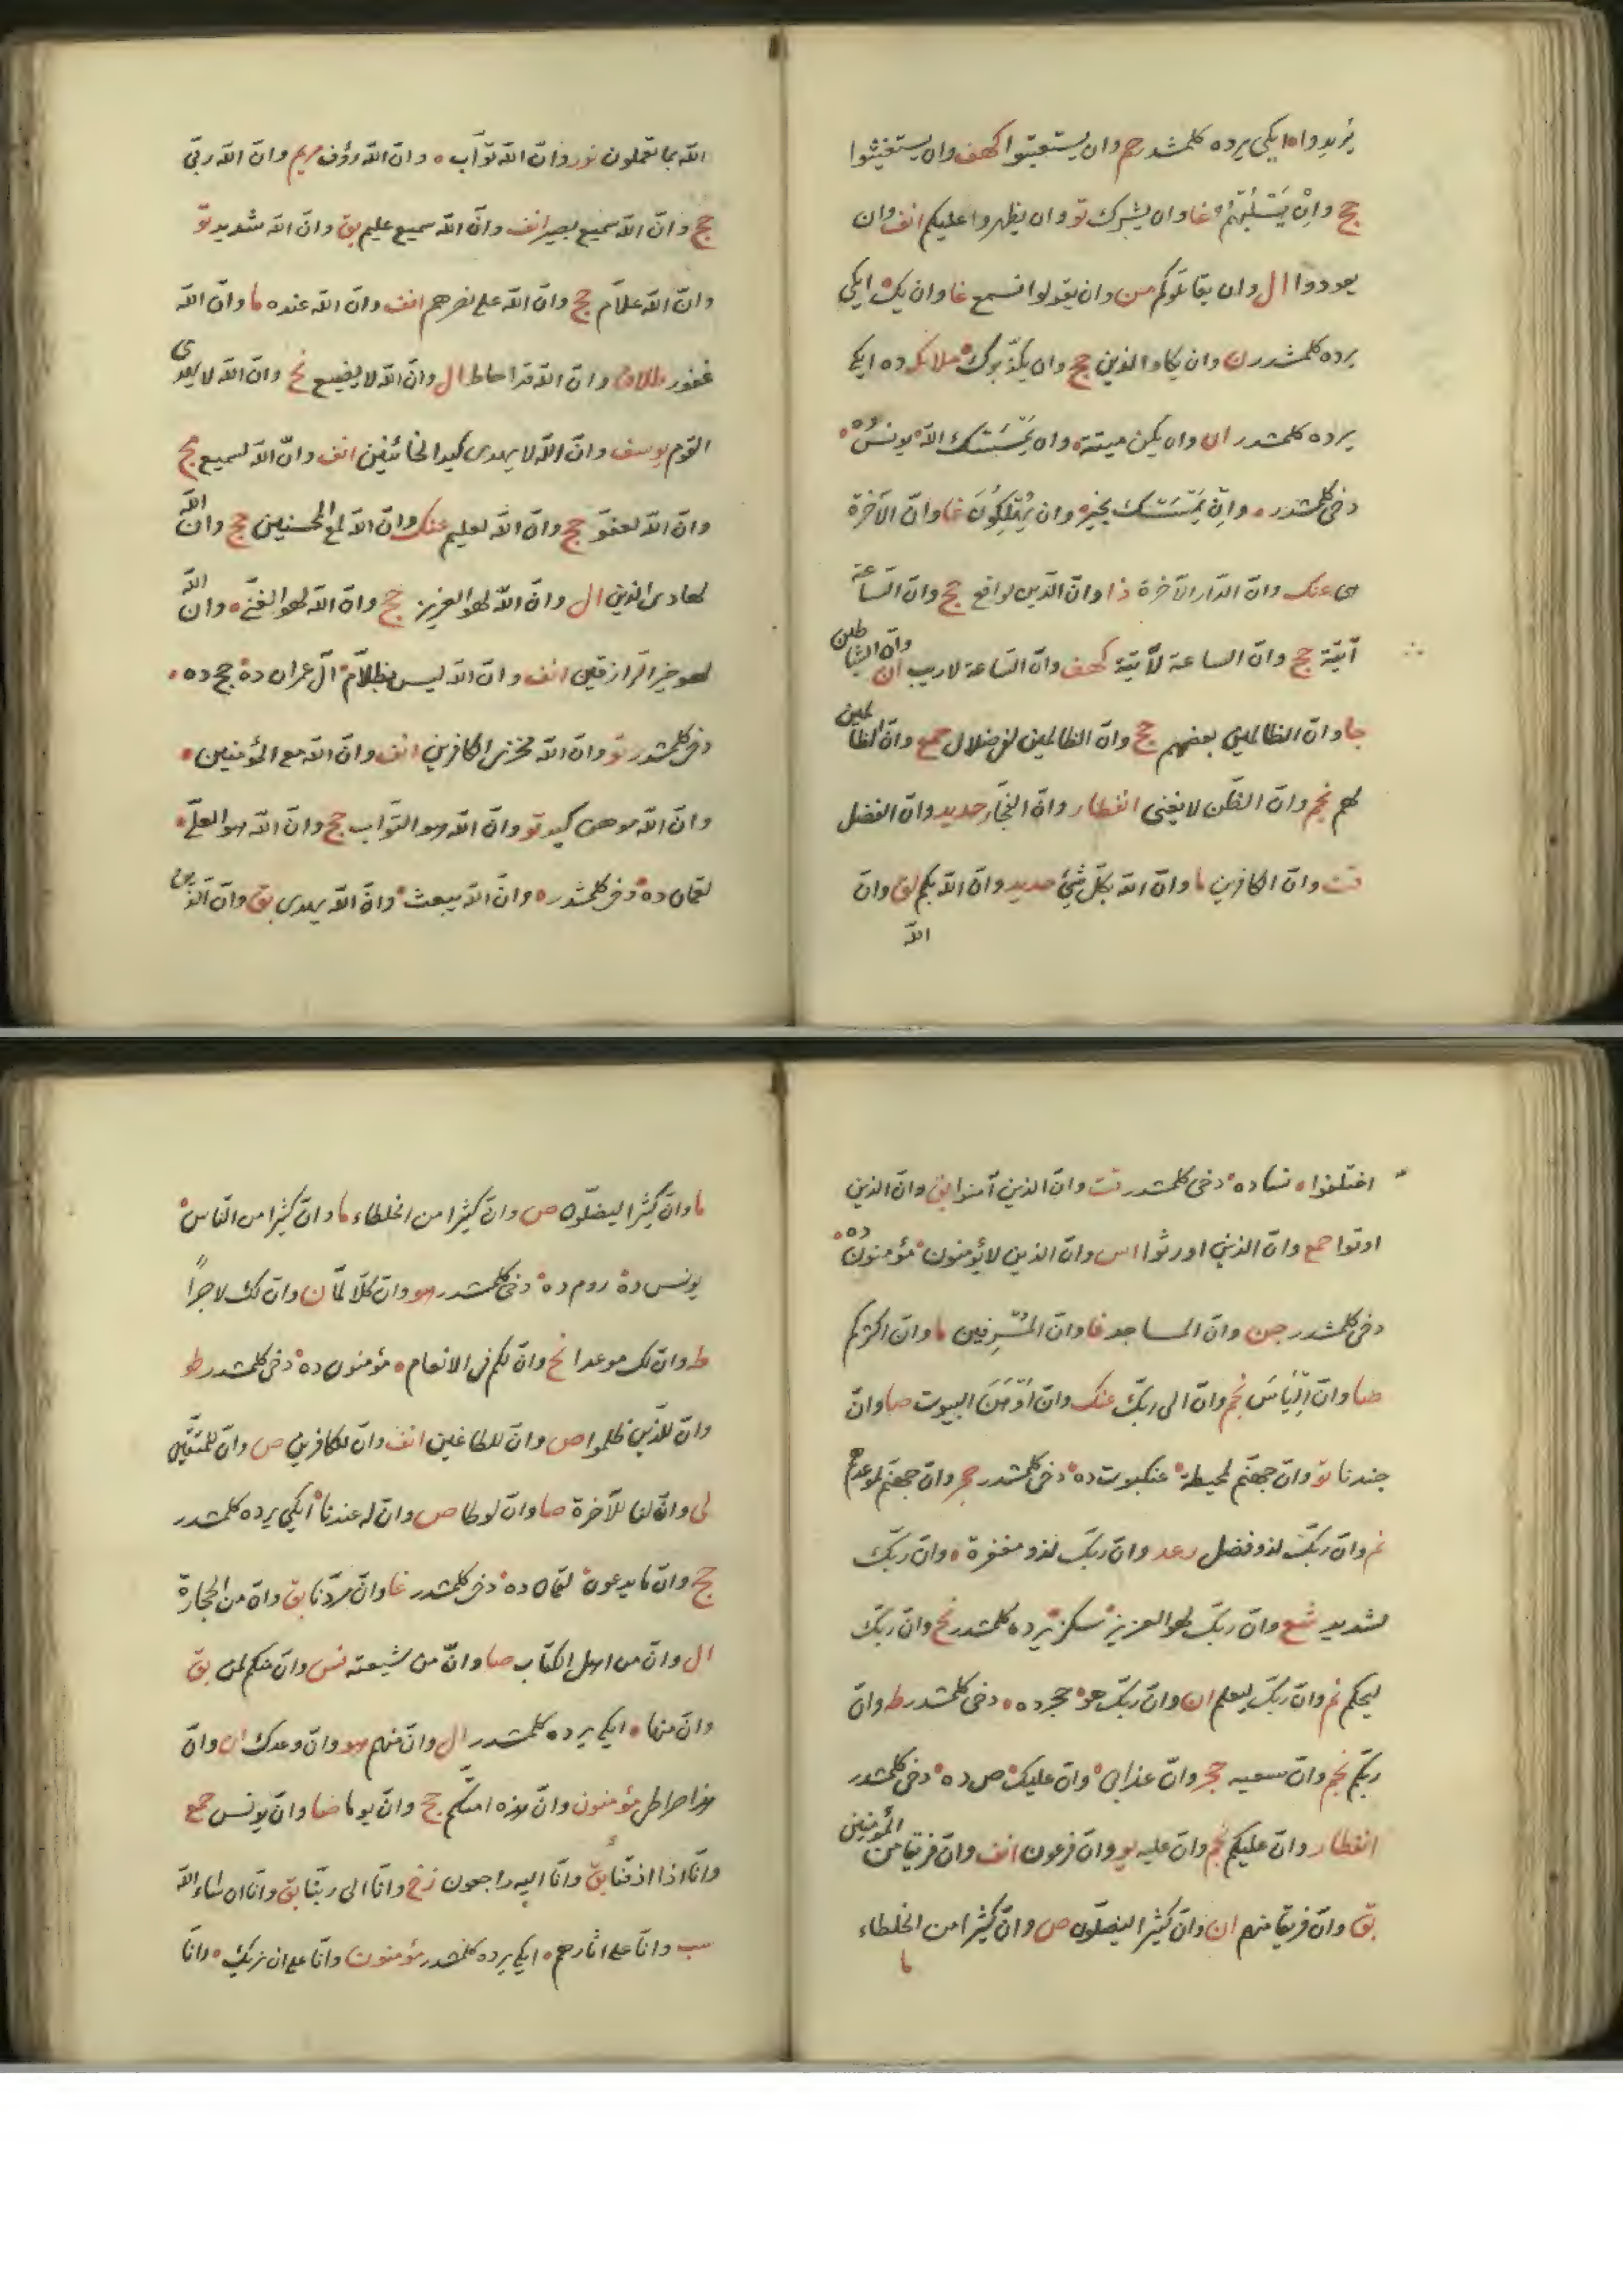 يريدوا ه ايكى يرده كلمشدر حم وان يستعتبوا كهف وان يستغيثوا
حج وان يسلبهم غا وان يشرك تو وان يظهروا عليكم انف وان
يعودوا ال وان يقاتلوكم من وان يقولوا تسمع غا وان يك ايكى
يرده كلمشدر ن وان يكاد الذين حج وان يكذبوك ملائكه ده ايكى
يرده كلمشدر ان وان يكن ميتة وان يمسسك الله يونس ده
دخى كلمشدر وان يمسسك بخير وان يهلكون غا وان الآخرة
هى عنك وان الدار الآخرة ذا وان الدين لواقع حج وان الساعة
آتية حج وان الساعة لآتية كهف وان الساعة لا ريب ان وان الشياطين
جا وان الظالمين بعضهم حج وان الظالمين لفى ضلال جمع وان الظالمين
لهم نجم وان الظن لا يغنى انفطار وان الفجار حديد وان الفضل
قت وان الكافرين ما وان الله بكل شئ حديد وان الله بكم لق وان
الله
الله بما تعملون نور وان الله تواب ه وان الله رؤف مريم وان الله ربى
حج وان الله سميع بصير انف وان الله سميع عليم بق وان الله شديد تو
وان الله علام حج وان الله على نصرهم انف وان الله عنده ما وان الله
غفور طلاق وان الله قد احاط ال وان الله لا يضيع نح وان الله لا يهدى
القوم يوسف وان الله لا يهدى كيد الخائنين انف وان الله لسميع حج
وان الله لعفو حج وان الله لعليم عنك وان الله لمع المحسنين حج وان الله
لهادى الذين ال وان الله لهو العزيز حج وان الله لهو الغنى ه وان الله
لهو خير الرازقين انف وان الله ليس بظلام آل عمران ده حج ده
دخى كلمشدر تو وان الله مخزى الكافرين انف وان الله مع المؤمنين
وان الله موهن كيد تو وان الله هو التواب حج وان الله هو العلى
لقمان ده دخى كلمشدر ه وان الله يبعث وان الله يهدى بق وان الذين
اختلفوا ه نسا ده دخى كلمشدر قت وان الذين آمنوا بق وان الذين
اوتوا جمع وان الذين اورثوا اس وان الذين لا يؤمنون مؤمنون ده
دخى كلمشدر جن وان المساجد غا وان المسرفين ما وان اكثركم
صا وان الياس نجم وان الى ربك عنك وان اوهن البيوت صا وان
جندنا تو وان جهنم لمحيطة عنكبوت ده دخى كلمشدر حجر وان جهنم لموعدهم
نم وان ربك لذو فضل رعد وان ربك لذو مغفرة ه وان ربك
لشديد شع وان ربك لهو العزيز سكز يرده كلمشدر نح وان ربك
ليحكم نم وان ربك ليعلم ان وان ربك هو حجر ده دخى كلمشدر ط وان
ربكم نجم وان سعيه حجر وان عذابى وان عليك ص ده دخى كلمشدر
انفطار وان عليكم نجم وان عليه يو وان فرعون انف وان فريقا من المؤمنين
بق وان فريقا منهم ان وان كثيرا ليضلون ص وان كثيرا من الخلطاء
ما
ما وان كثيرا ليضلون ص وان كثيرا من الخلطاء ما وان كثيرا من الناس
يونس ده روم ده دخى كلمشدر هو وان كلا لما ن وان لك لاجرا
ط وان لك موعدا نح وان لكم فى الانعام ه مؤمنون ده دخى كلمشدر طو
وان للذين ظلموا ص وان للطاغين انف وان للكافرين ص وان للمتقين
لى وان لنا للآخرة صا وان لوطا ص وان له عندنا ايكى يرده كلمشدر
حج وان ما يدعون لقمان ده دخى كلمشدر غا وان مردنا بق وان من الحجارة
ال وان من اهل الكتاب صا وان من شيعته نس وان منكم لمن بق
وان منها ايكى يرده كلمشدر ال وان منهم هو وان وعدك ان وان
هذا صراطى مؤمنون وان هذه امتكم حج وان يوما صا وان يونس جمع
وانا اذا اذقنا بق وانا اليه راجعون زخ وانا الى ربنا بق وانا ان شاء الله
سب وانا على اثارهم ايكى يرده كلمشدر مؤمنون وانا على ان نريك وانا